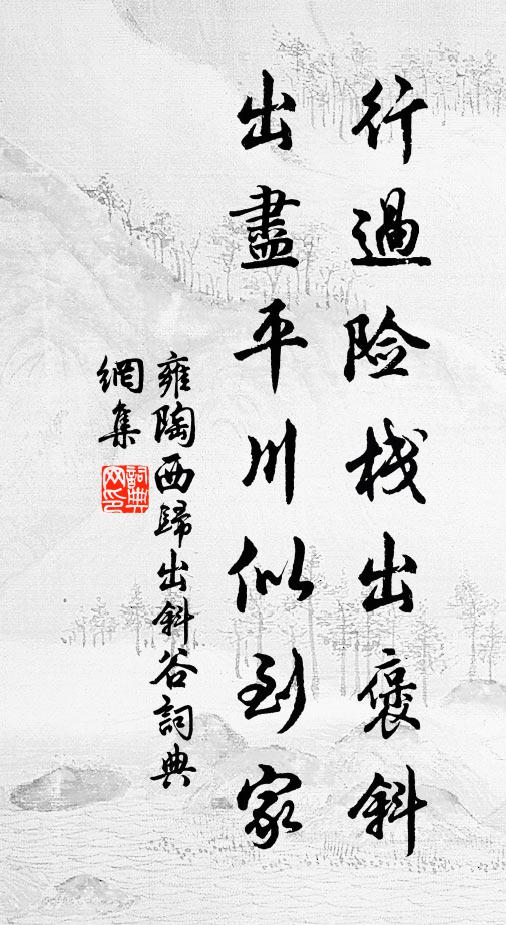 行過险栈出褒斜
出盡平川似到家
雍陶西歸出斜谷詞典
網集
詞典
网印